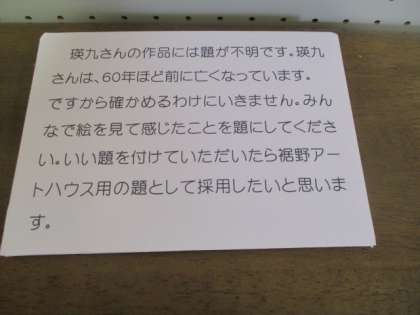 瑛九さんの作品には題が不明です。瑛九
さんは、60年ほど前に亡くなっています。
ですから確かめるわけにいきません。みん
なで絵を見て感じたことを題にしてくださ
い。いい題を付けていただいたら裾野アー
トハウス用の題として採用したいと思いま
す。